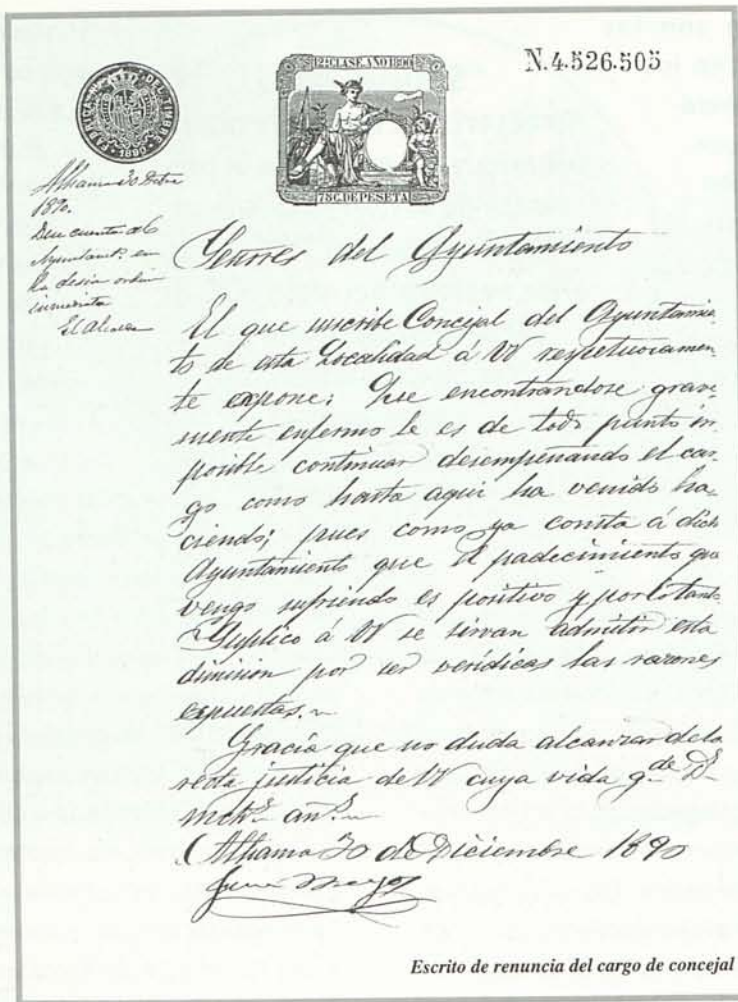 N.4.526.505
FABRICA NACIONAL DEL TIMBRE
1890
75 C. DE PESETA
Alhama 30 Dcbre
1890.
Dese cuenta al
Ayuntamto. en
la sesion ordin
inmediata
El Alcalde
Señores del Ayuntamiento
El que suscribe Concejal del Ayuntamien-
to de esta Localidad á VV respetuosamen-
te expone: Que encontrandose grave-
mente enfermo le es de todo punto im-
posible continuar desempeñando el car-
go como hasta aqui ha venido ha-
ciendo; pues como ya consta á dicho
Ayuntamiento que el padecimiento que
vengo sufriendo es positivo y por lo tanto
Suplico á VV se sirvan admitir esta
dimision por ser veridicas las razones
expuestas.
Gracia que no duda alcanzar de la
recta justicia de VV cuya vida g.de D.
mchs. ans.
Alhama 30 de Diciembre 1890
Escrito de renuncia del cargo de concejal